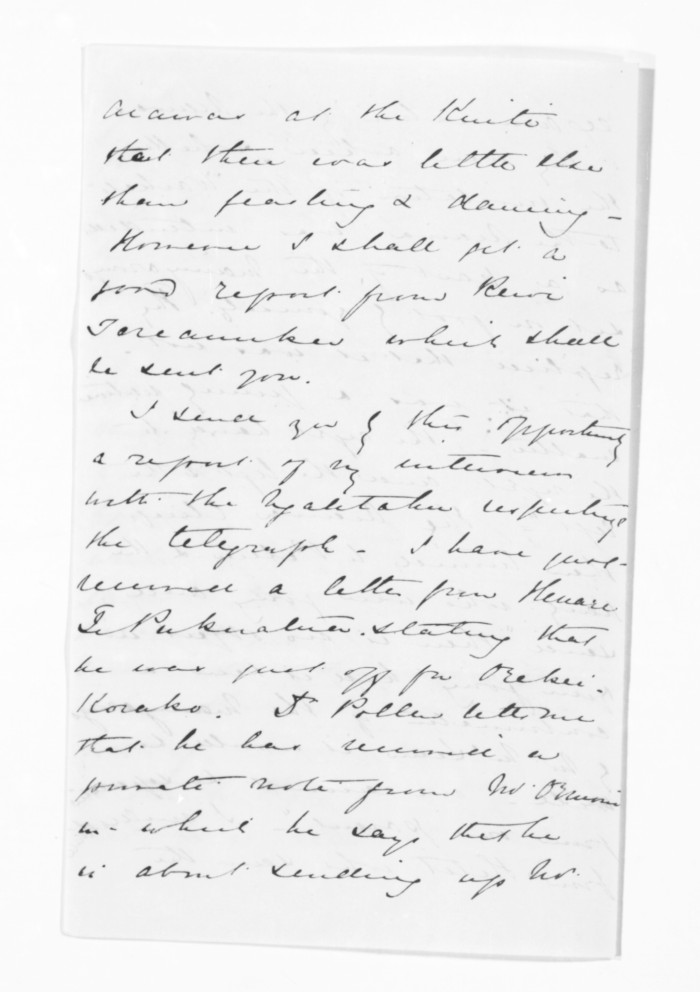 at the Kuiti
that there was little else
than feasting & dancing –
However I shall get a
good report from Rewi
which shall
be sent you.
I send you by this opportunity
a report of my interview
with the respecting
the telegraph – I have just
received a letter from Henare
Te Pukuatua stating that
he was just off for Orakei-
Korako. Dr Pollen tells me
that he has received a
private note from Mr Ormond
in which he says that he
is about sending up Mr